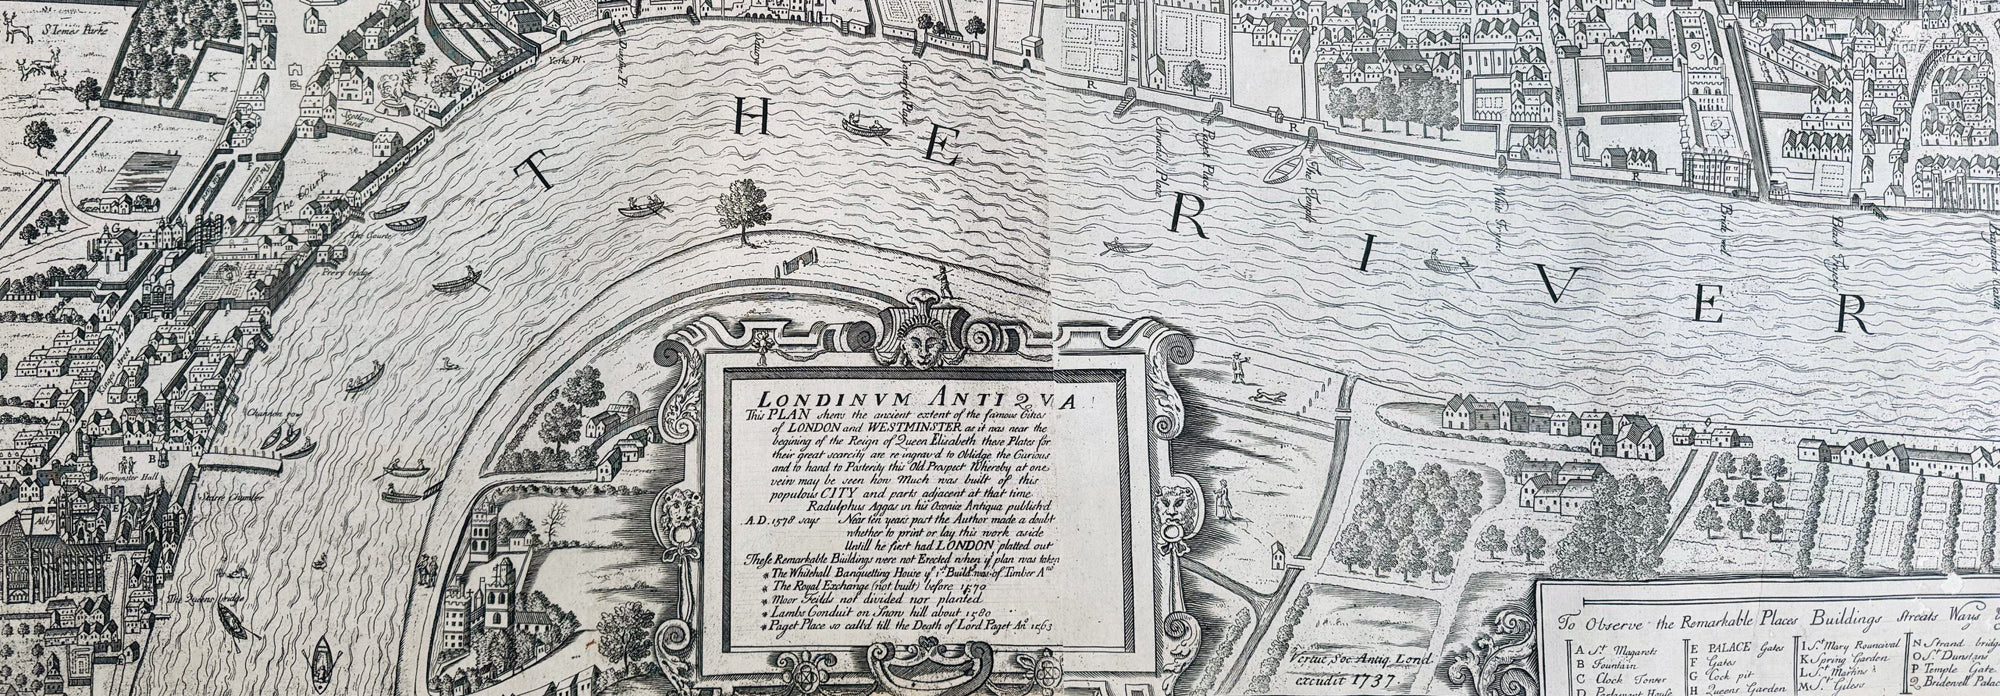 St Iemes Parke
K
Yorke Pl.
Durham Pl
Savoye
Somerset Place
Scotland Yard
F
The Courte
The Courte
Prevy bridge
G
H
F
Kinge Street
Channon row
B
Westmynster Hall
Starre Chamber
A
Abby
E
E
The Queens bridge
R
Arundell Place
Paget Place
R
The Temple
White Fryers
P
R
Q
Bride well
Black Fryers
THE RIVER
LONDINVM ANTIQVA
This PLAN shews the ancient extent of the famous Cities
of LONDON and WESTMINSTER as it was near the
begining of the Reign of Queen Elisabeth these Plates for
their great scarcity are re ingrav'd to Oblidge the Curious
and to hand to Posterity this Old Prospect Whereby at one
vein may be seen how Much was built of this
populous CITY and parts adjacent at that time
Radulphus Aggas in his Oxoniæ Antiqua publish'd
A.D. 1578 says Near ten years past the Author made a doubt
whether to print or lay this work aside
Untill he first had LONDON platted out
These Remarkable Buildings were not Erected when ye plan was taken
* The Whitehall Banquetting House ye 1st Build. was of Timber Ano
* The Royal Exchange (not built) before 1570
* Moor Feilds not divided nor planted
* Lambs Conduit on Snow hill about 1580
* Paget Place so call'd till the Death of Lord Paget An. 1563
Vertue Soc. Antiq. Lond.
excudit 1737.
To Observe the Remarkable Places Buildings Streats Ways
A St. Magarets
B Fountain
C Clock Tower
D Parlament House
E PALACE Gates
F Gates
G Cock pit
H Queens Garden
I St. Mary Rouncival
K Spring Garden
L St. Martins
M St. Giles
N Strand bridge
O St. Dunstans
P Temple Gate
Q Bridewell Palace